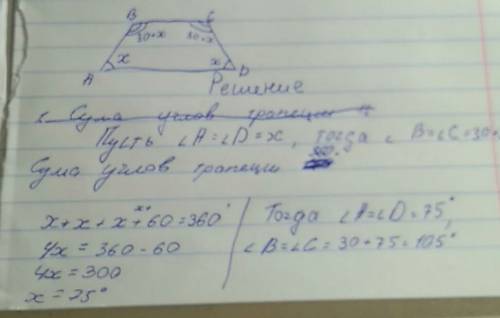 B C
30+x 30+x
x x
A D
Решение
Сума углов трапеции
Пусть ∠A=∠D=x, тогда ∠B=∠C=30+
Сума углов трапеции 360°
x+x+x+x+60=360°
4x=360-60
4x=300
x=75°
Тогда ∠A=∠D=75°,
∠B=∠C=30+75=105°